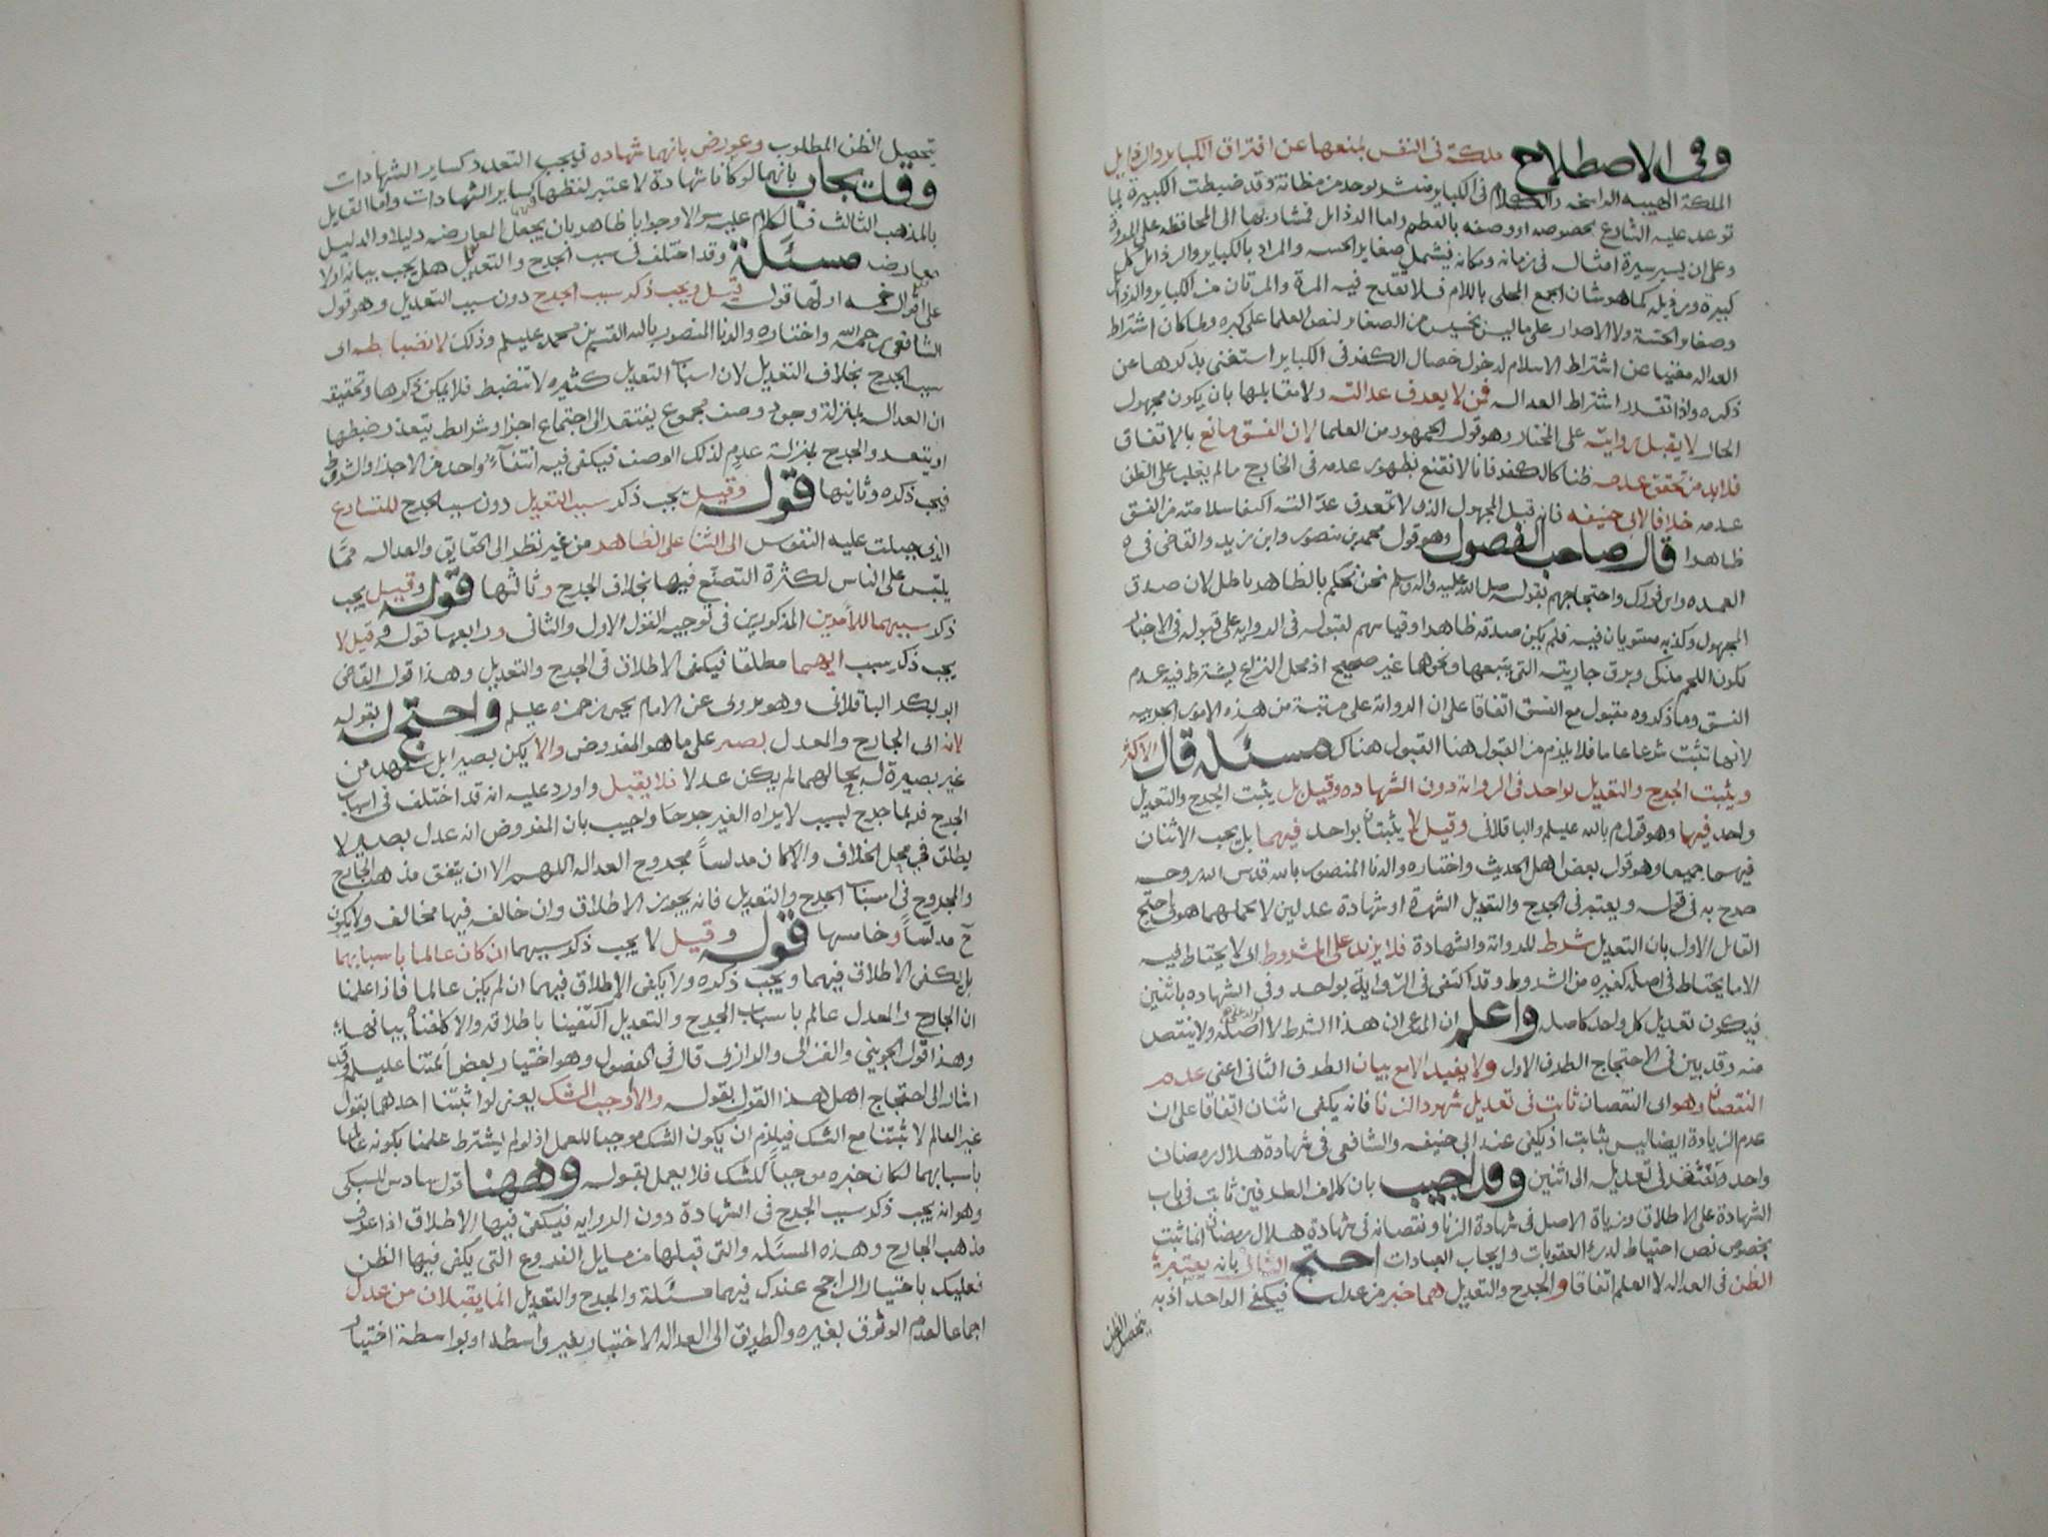 وفي الاصطلاح ملكة في النفس تمنعها عن اقتراف الكباير والرذايل
الملكة الهيئة الراسخة والكلام في الكباير منشر يوخد من مظانه وقد ضبطت الكبيرة بما
توعد عليه الشارع بخصوصه او وصفه بالعظم واما الرذايل فمشار بها الى المحافظه على المروة
وعلى ان يسير سيرة امثاله في زمانه ومكانه فيشمل صغاير الخسه والمراد بالكباير والرذايل كل
كبيرة ورذيله كما هو شان الجمع المحلى باللام فلا تقدح فيه المرة والمرتان من الكباير والرذايل
وصغاير الخسة ولا الاصرار على ما ليس بخسيس من الصغاير لنص العلما على كبره ولما كان اشتراط
العداله مغنيا عن اشتراط الاسلام لدخول خصال الكفر في الكباير استغنى بذكرها عن
ذكره واذا تقرر اشتراط العداله فمن لا يعرف عدالته ولا مقابلها بان يكون مجهول
الحال لا يقبل روايته على المختار وهو قول الجمهور من العلما لان الفسق مانع بالاتفاق
فلا بد من تحقق عدمه ظنا كالكفر فانا لا نقنع بظهور عدمه في الخارج ما لم يغلب على الظن
عدمه خلافا لابي حنيفه فانه قبل المجهول الذي لا تعرف عدالته اكتفا بسلامته من الفسق
ظاهرا قال صاحب الفصول وهو قول محمد بن منصور وابن زيد والقاضي في
العمده وابن فورك واحتجاجهم بقوله صلى الله عليه واله وسلم نحن نحكم بالظاهر باطل لان صدق
المجهول وكذبه مستويان فيه فلم يكن صدقه ظاهرا وقياسهم لقبوله في الروايه على قبوله في الاخبار
بكون اللحم مذكى وبرق جاريته التي يبيعها ونحوها غير صحيح اذ محل النزاع يشترط فيه عدم
الفسق وما ذكروه مقبول مع الفسق اتفاقا على ان الرواية على مرتبة من هذه الامور الجزييه
لانها تثبت شرعا عاما فلا يلزم من القبول هنا القبول هناك مسئلة قال الاكثر
ويثبت الجرح والتعديل بواحد في الرواية دون الشهاده وقيل بل يثبت الجرح والتعديل
بواحد فيهما وهو قول م بالله عليلم والباقلاني وقيل لا يثبتان بواحد فيهما بل يجب الاثنان
فيهما جميعا وهو قول بعض اهل الحديث واختاره والدنا المنصور بالله قدس الله روحه
صرح به في قوله ويعتبر في الجرح والتعديل الشهرة او شهادة عدلين لا يحملهما هوى احتج
القايل الاول بان التعديل شرط للرواية والشهادة فلا يزيد على المشروط اي لا يحتاط فيه
الا ما يحتاط في اصله كغيره من الشروط وقد اكتفى في الرواية بواحد وفي الشهاده باثنين
فيكون تعديل كل واحد كاصله واعلم ان المدعى ان هذا الشرط لا يزاد على اصله ولا ينقص
منه وقد بين في الاحتجاج الطرف الاول ولا يفيد الا مع بيان الطرف الثاني اعني عدم
النقصان وهو اي النقصان ثابت في تعديل شهود الزنا فانه يكفي اثنان اتفاقا على ان
عدم الزيادة ايضا ليس بثابت اذ يكفي عند ابي حنيفه والشافعي في شهادة هلال رمضان
واحد ويفتقر في تعديله الى اثنين وقد اجيب بان كلا من الطرفين ثابت في باب
الشهادة على الاطلاق وزيادة الاصل في شهادة الزنا ونقصانه في شهادة هلال رمضان انما ثبت
بخصوص نص احتياط لدرء العقوبات وايجاب العبادات احتج الثاني بانه يعتبر
الظن في العداله لا العلم اتفاقا والجرح والتعديل هما خبر من عدل فيكفي الواحد اذ به
يحصل الظن
يحصل الظن المطلوب وعورض بانهما شهاده فيجب التعدد كساير الشهادات
وقد يجاب بانهما لو كانا شهادة لاعتبر لفظها كساير الشهادات واما القايل
بالمذهب الثالث فالكلام عليه سوالا وجوابا ظاهر بان يجعل المعارضه دليلا والدليل
معارضه مسئلة وقد اختلف في سبب الجرح والتعديل هل يجب بيانه او لا
على اقوال خمسه اولها قوله قيل ويجب ذكر سبب الجرح دون سبب التعديل وهو قول
الشافعي رحمه الله واختاره والدنا المنصور بالله القسم بن محمد عليلم وذلك لانضباطه اي
سبب الجرح بخلاف التعديل لان اسباب التعديل كثيره لا تنضبط فلا يمكن ذكرها وتحقيقه
ان العداله بمنزلة وجود وصف مجموع يفتقر الى اجتماع اجزا وشرايط يتعذر ضبطها
او يتعسر والجرح بمنزلة عدم لذلك الوصف فيكفي فيه انتفاء واحد من الاجزا والشروط
فيجب ذكره وثانيها قوله وقيل يجب ذكر سبب التعديل دون سبب الجرح للتسارع
الذي جبلت عليه النفوس الى الثنا على الظاهر من غير نظر الى الحقايق والعداله مما
يلتبس على الناس لكثرة التصنع فيها بخلاف الجرح وثالثها قوله وقيل يجب
ذكر سببهما للامرين المذكورين في توجيه القول الاول والثاني ورابعها قوله وقيل لا
يجب ذكر سبب ايهما مطلقا فيكفي الاطلاق في الجرح والتعديل وهذا قول القاضي
ابو بكر الباقلاني وهو مروي عن الامام يحيى بن حمزه عليلم واحتج له بقوله
لانه اي الجارح والمعدل بصير على ما هو المفروض والا يكن بصيرا بل شهد من
غير بصيرة له بحالهما لم يكن عدلا فلا يقبل واورد عليه انه قد اختلف في اسباب
الجرح فربما جرح بسبب لا يراه الغير جرحا واجيب بان المفروض انه عدل بصير لا
يطلق في محل الخلاف والا كان مدلسا مجروح العداله اللهم الا ان يتفق مذهب الجارح
والمجروح في اسباب الجرح والتعديل فانه يجوز الاطلاق وان خالفه فيها مخالف ولا يكون
ح مدلسا وخامسها قوله وقيل لا يجب ذكر سببهما ان كان عالما باسبابهما
بل يكفي الاطلاق فيهما ويجب ذكره ولا يكفي الاطلاق فيهما ان لم يكن عالما فاذا علمنا
ان الجارح والمعدل عالم باسباب الجرح والتعديل اكتفينا باطلاقه والا كلفناه بيانها
وهذا قول الجويني والغزالي والرازي قال في الفصول وهو اختيار بعض ائمتنا عليلم وقد
اشار الى احتجاج اهل هذا القول بقوله والا اوجب الشك يعني لو اثبتنا احدهما بقول
غير العالم لاثبتنا مع الشك فيلزم ان يكون الشك موجبا للعمل اذ لو لم يشترط علمنا بكونه عالما
باسبابهما لكان خبره موجبا للشك فلا يعمل بقوله وههنا قول سادس للسبكي
وهو انه يجب ذكر سبب الجرح في الشهادة دون الروايه فيكفي فيها الاطلاق اذا عرف
مذهب الجارح وهذه المسئله والتي قبلها من مسايل الفروع التي يكفي فيها الظن
فعليك باختيار الراجح عندك فيهما مسئلة والجرح والتعديل انما يقبلان من عدل
اجماعا لعدم الوثوق بغيره والطريق الى العداله الاختبار بغير واسطه او بواسطة اختيار